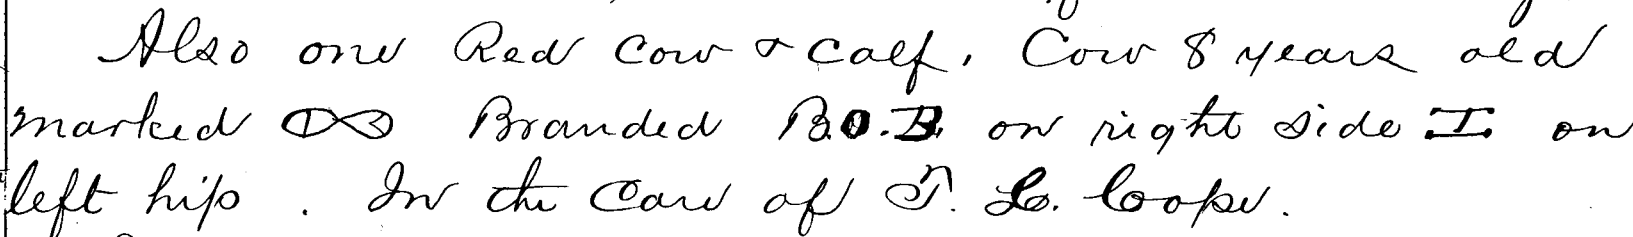 Also one Red Cow & Calf. Cow 8 years old
marked Branded B.O.B. on right side I on
left hip. In the Care of T. L. Cooper.